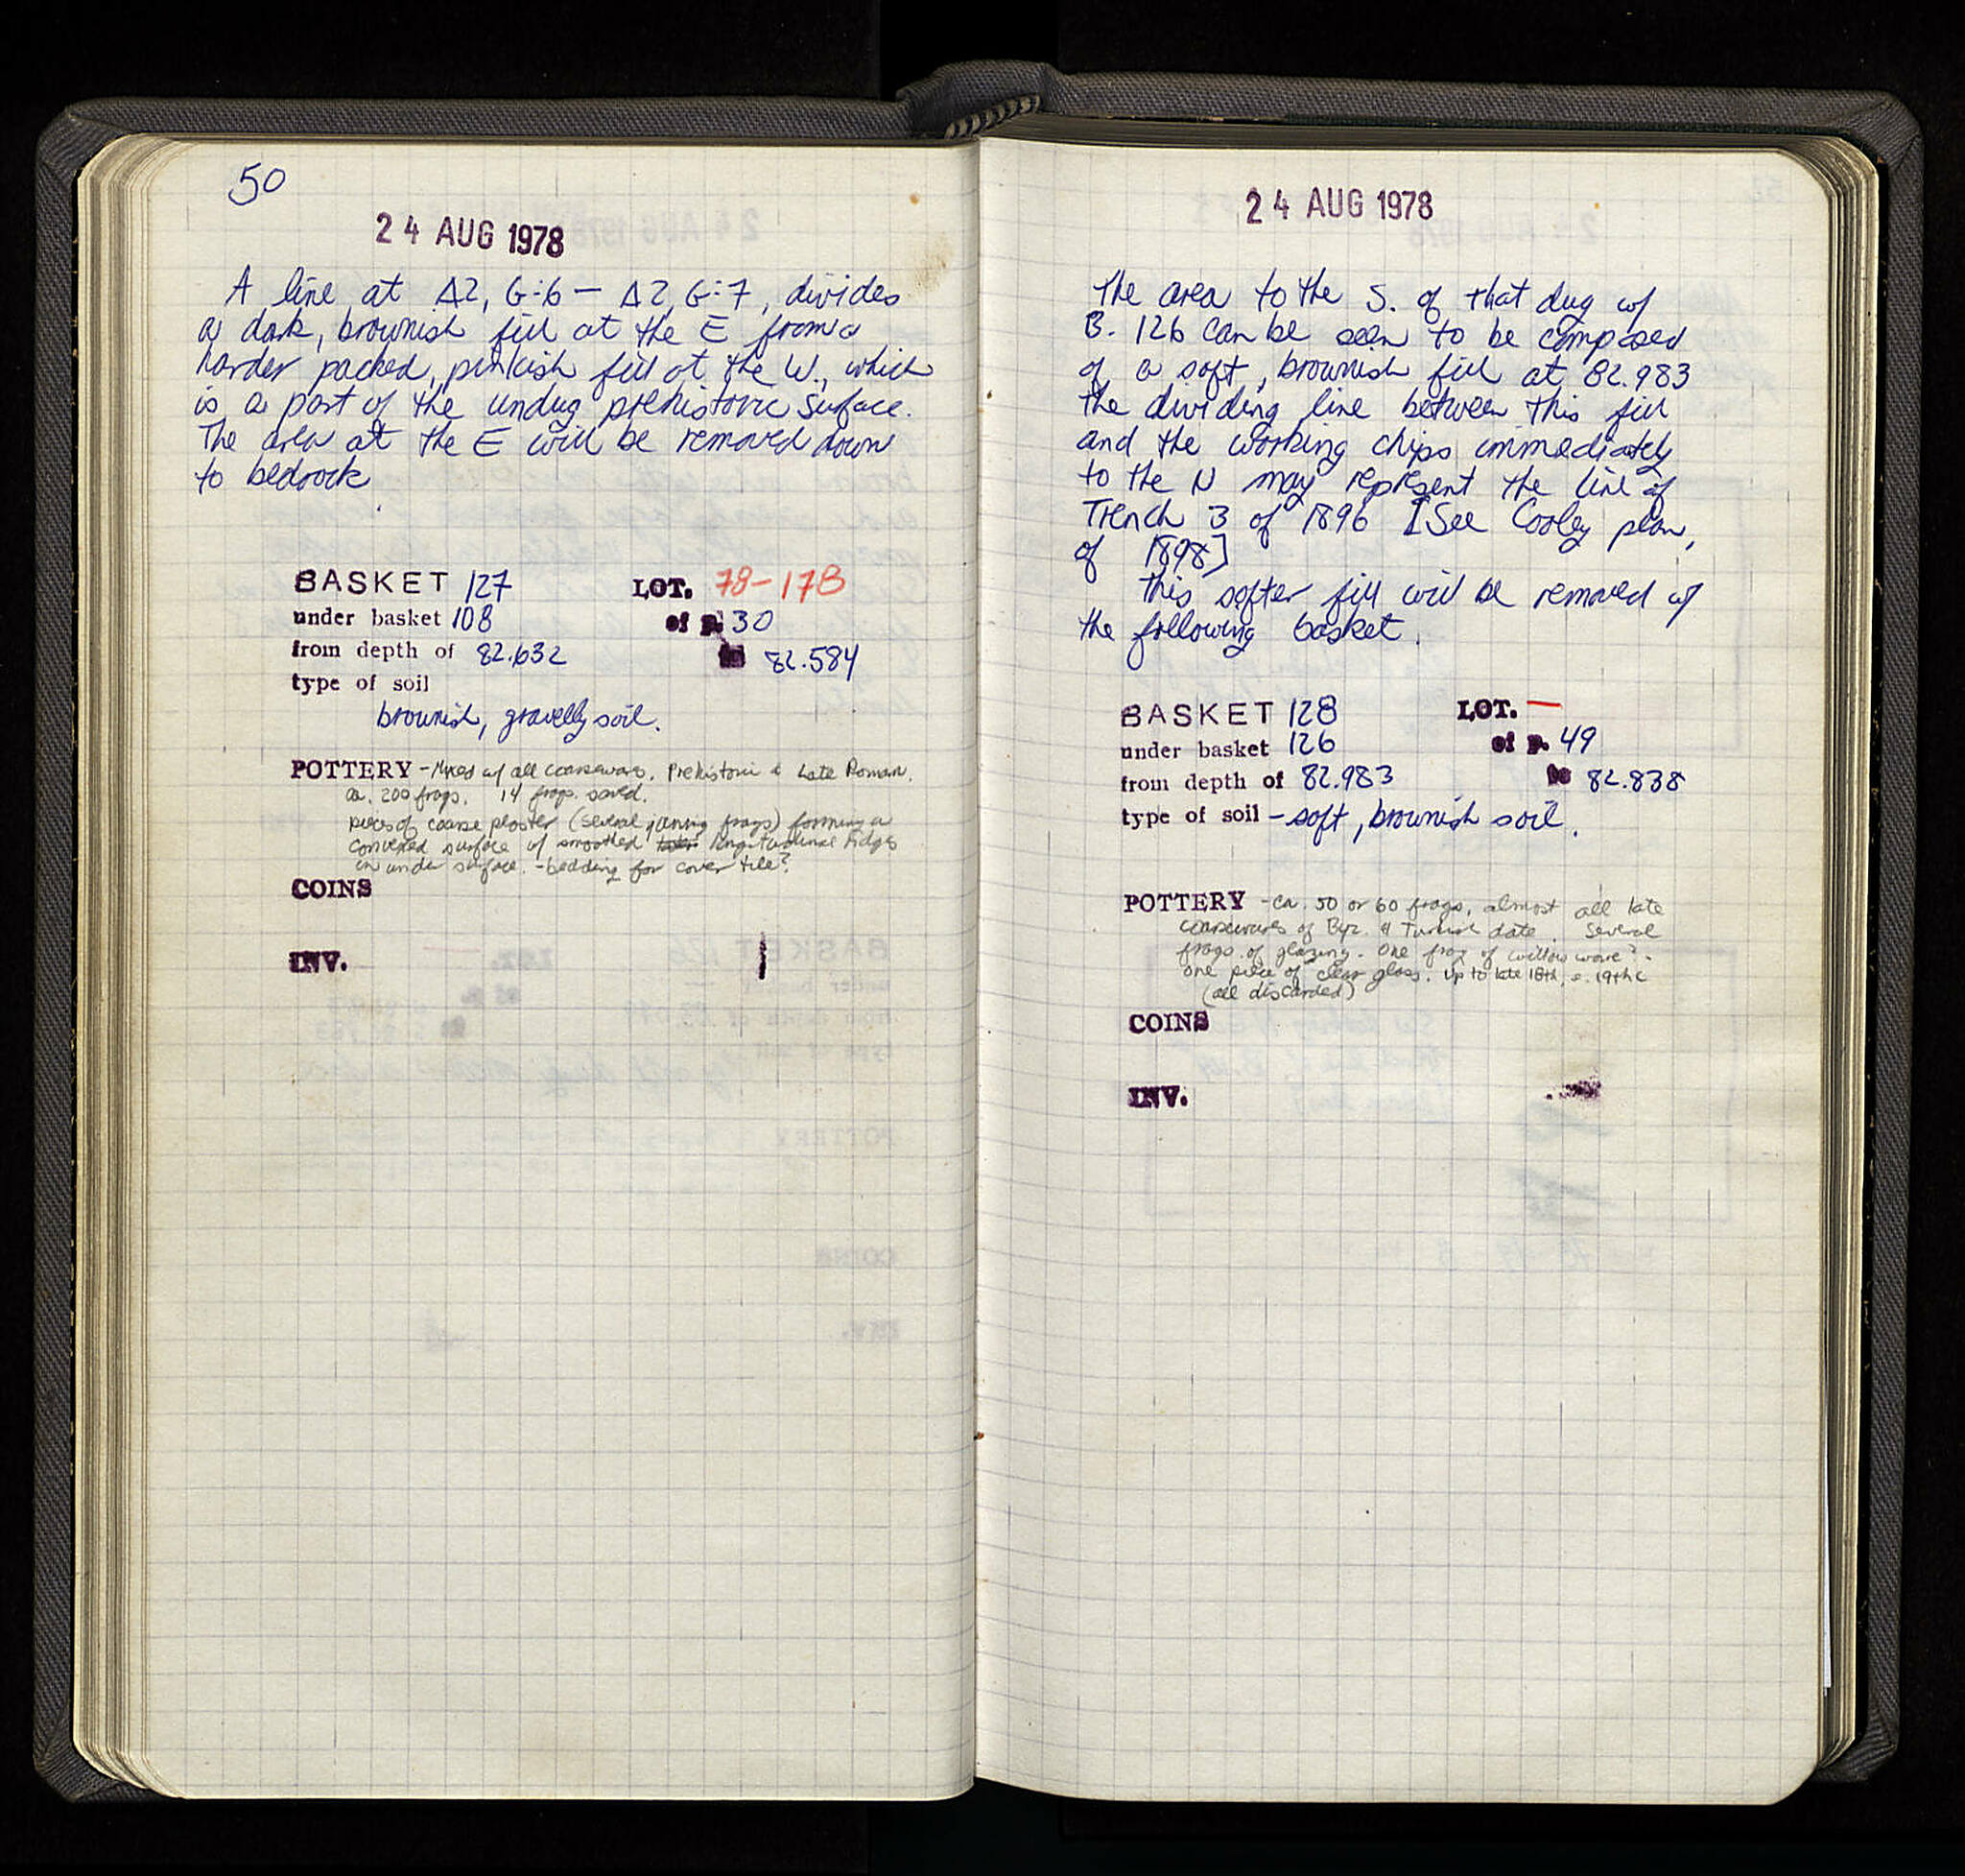 50
24 AUG 1978
A line at Δ2, G:6 — Δ2, G:7, divides
a dark, brownish fill at the E from a
harder packed, pinkish fill at the W., which
is a part of the undug prehistoric surface.
The area at the E will be removed down
to bedrock.
BASKET 127 LOT. 78-178
under basket 108 of p. 30
from depth of 82.632 to 82.584
type of soil
brownish, gravelly soil.
POTTERY - Mixed w/ all coarseware. Prehistoric & Late Roman.
ca. 200 frags. 14 frags. saved.
pieces of coarse plaster (several joining frags) forming a
convexed surface w/ smoothed longitudinal ridges
on under surface. - bedding for cover tile?
COINS
INV.
24 AUG 1978
The area to the S. of that dug w/
B. 126 can be seen to be composed
of a soft, brownish fill at 82.983
the dividing line between this fill
and the working chips immediately
to the N may represent the line of
Trench 3 of 1896 [See Cooley plan,
of 1898]
This softer fill will be removed w/
the following basket.
BASKET 128 LOT. —
under basket 126 of p. 49
from depth of 82.983 to 82.838
type of soil - soft, brownish soil.
POTTERY - ca. 50 or 60 frags, almost all late
coarsewares of Byz. & Turkish date. Several
frags. of glazing. One frag of willow ware?.
one piece of clear glass. up to late 18th, e. 19th c
(all discarded)
COINS
INV.